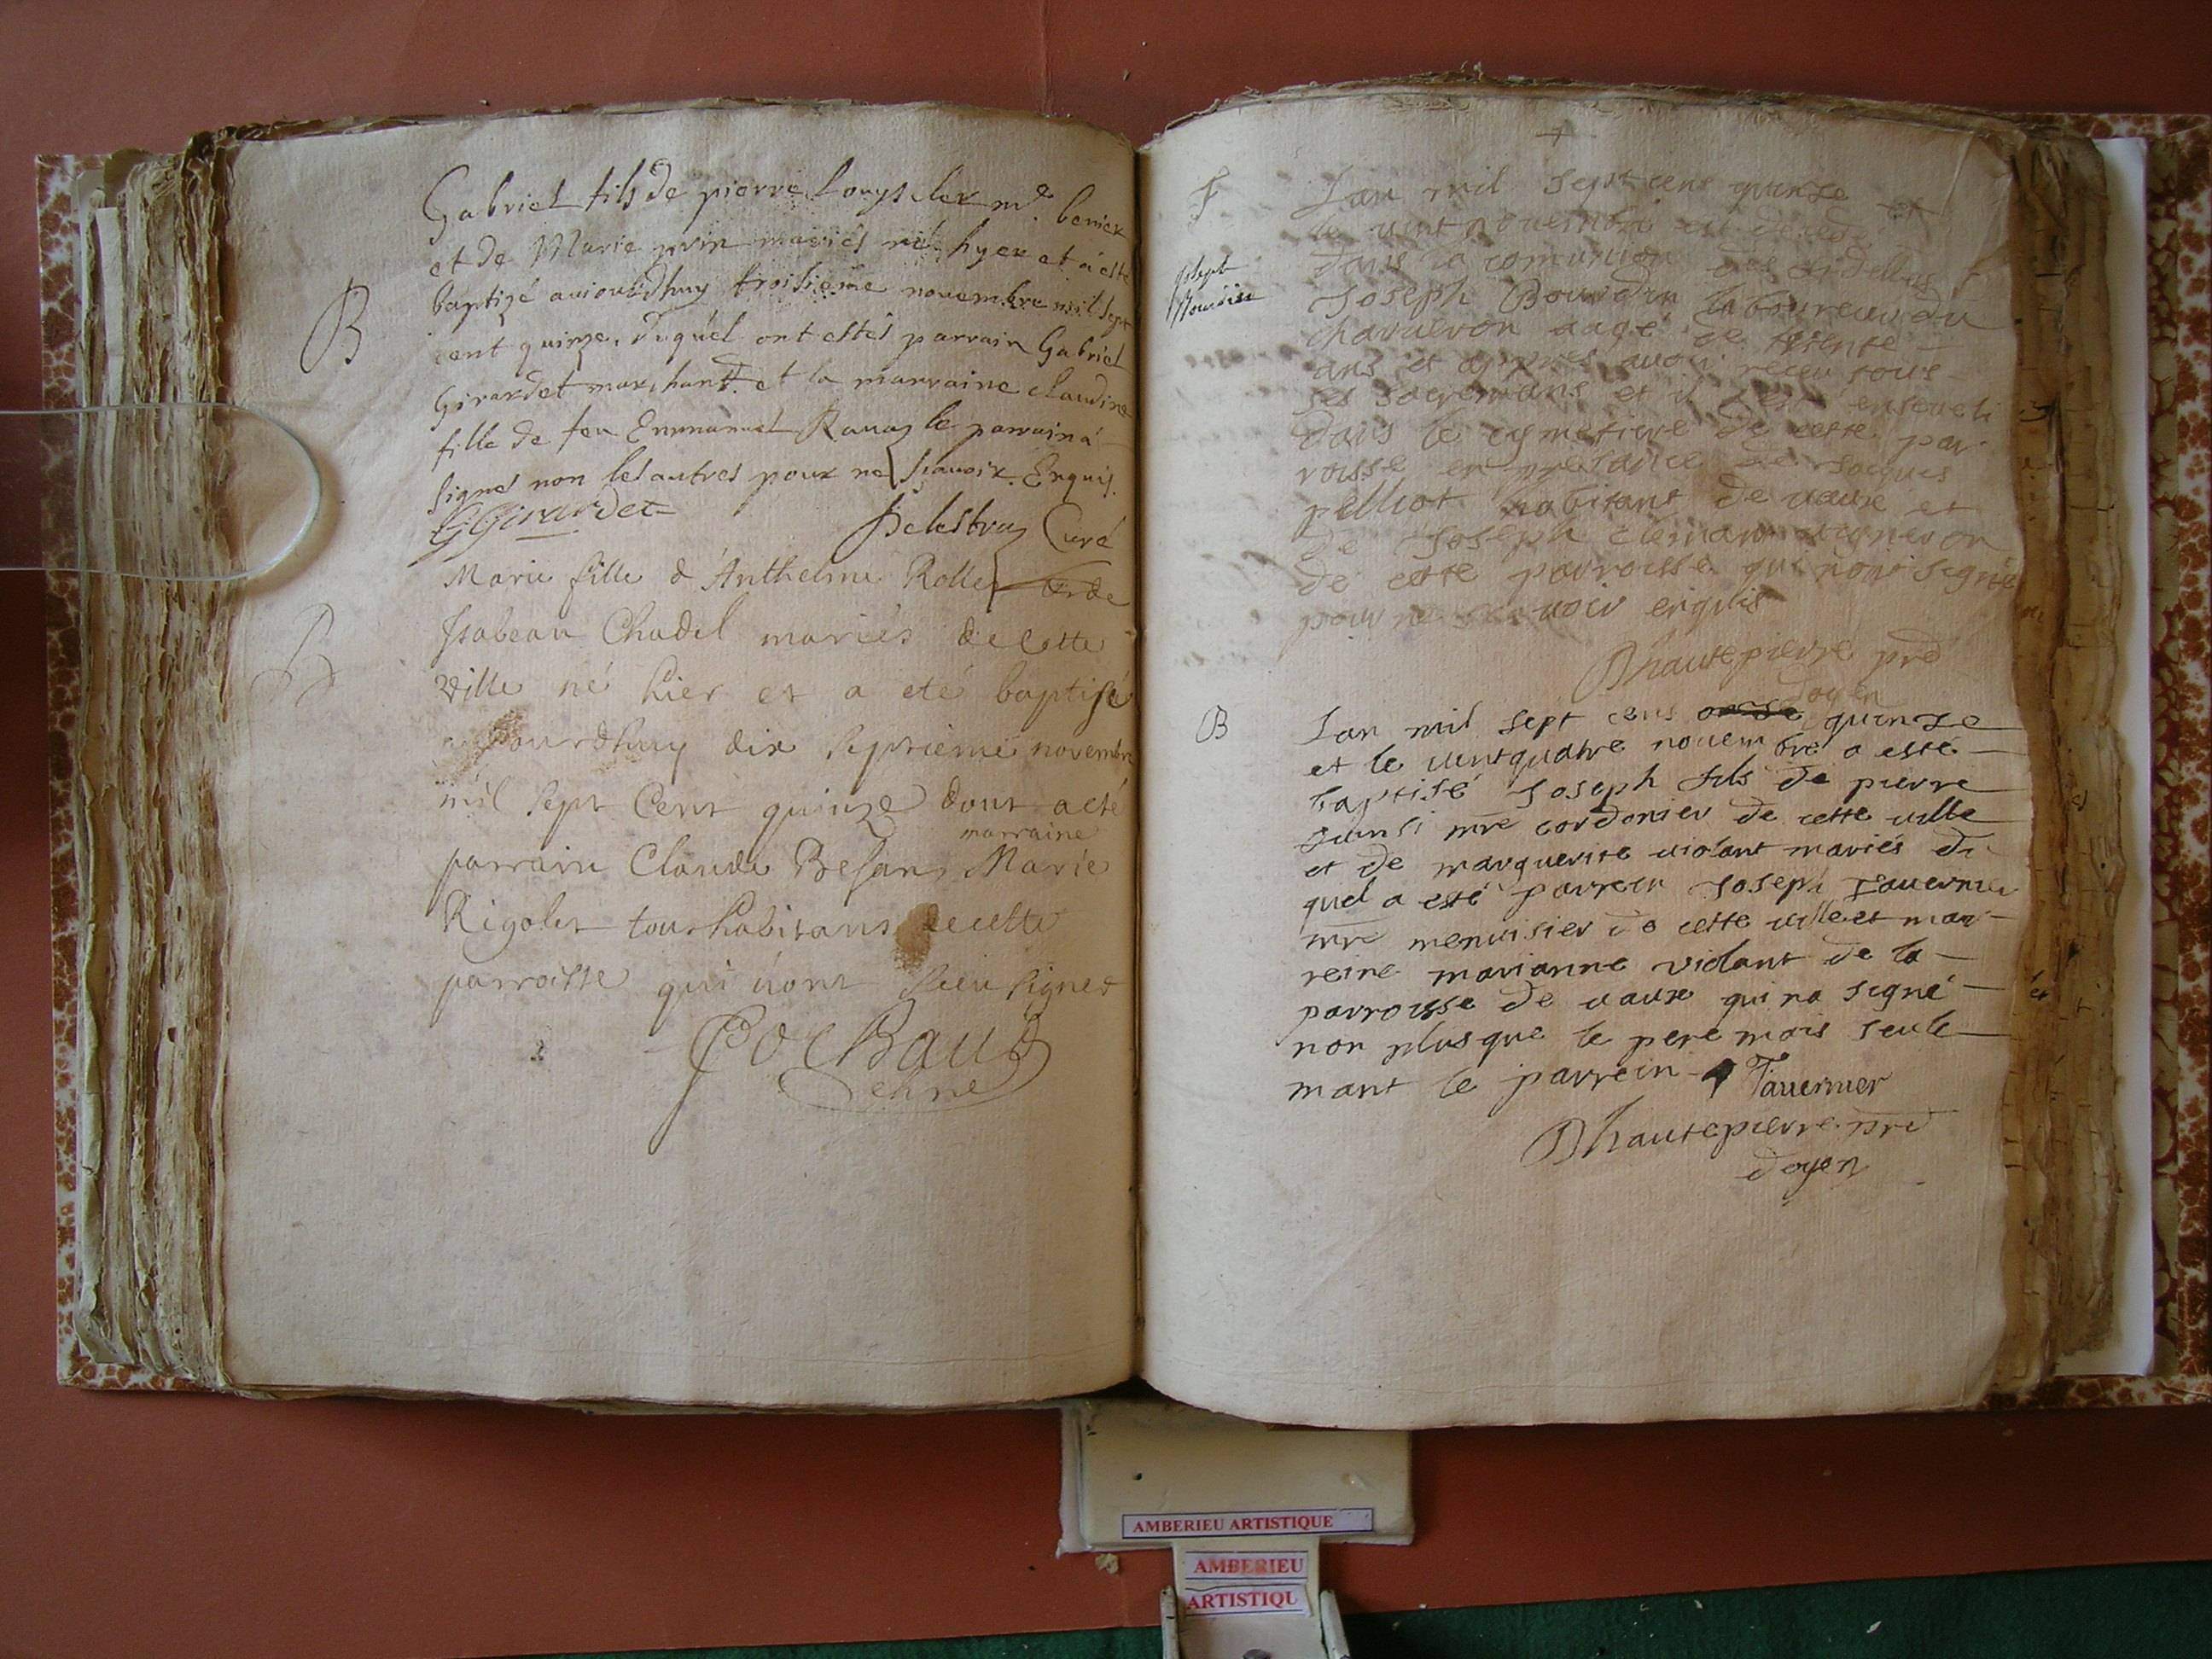 Gabriel fils de pierre Louys cler m.e
et de Marie prin mariés né hyer et a esté
B
baptizé auiourdhuy troisieme novembre mil sept
cent quinze, duquel ont estés parrain Gabriel
Girardet marchand et la marraine claudine
fille de feu Emmanuel Ravaz le parrain a
signé non les autres pour ne sçavoir Enquis.
GGirardet
Delestraz Curé
Marie fille d'Anthelme Rollet et de
B
Isabeau Chadel mariés de cette
ville né hier et a eté baptisé
aujourdhuy dix septieme novembre
mil sept Cent quinze dont acté
marraine
parrain Claude Besan Marie
Rigolet tous habitans de cette
parroisse qui nont sceu signer
Cochaud
F
Lan mil sept cens quinze et
le vint novembre est decedé
dans la comunion des fidelles
Joseph
Bourdin
Joseph Bourdin laboureur du
chavaeron aagé de trente
ans et apprés avoir receu tous
ses sacremans et il a esté enseveli
dans le cymetiere de cette par
roisse en presance de Jacques
pelliot habitant de vaux et
de Joseph cleman vigneron
de cette parroisse qui nont signé
pour ne sçavoir enquis
Dhautepierre pre
doyen
B
Lan mil sept cens quinze
et le vintquatre novembre a esté
baptisé Joseph fils de pierre
mre cordonier de cette ville
et de marguerite violant mariés du
quel a esté parrein Joseph Tavernier
mre menuisier de cette ville et mar
reine marianne violant de la
parroisse de vaux qui na signé
non plus que le pere mais seule
mant le parrein Tavernier
Dhautepierre pre
doyen
AMBERIEU ARTISTIQUE
AMBERIEU
ARTISTIQU